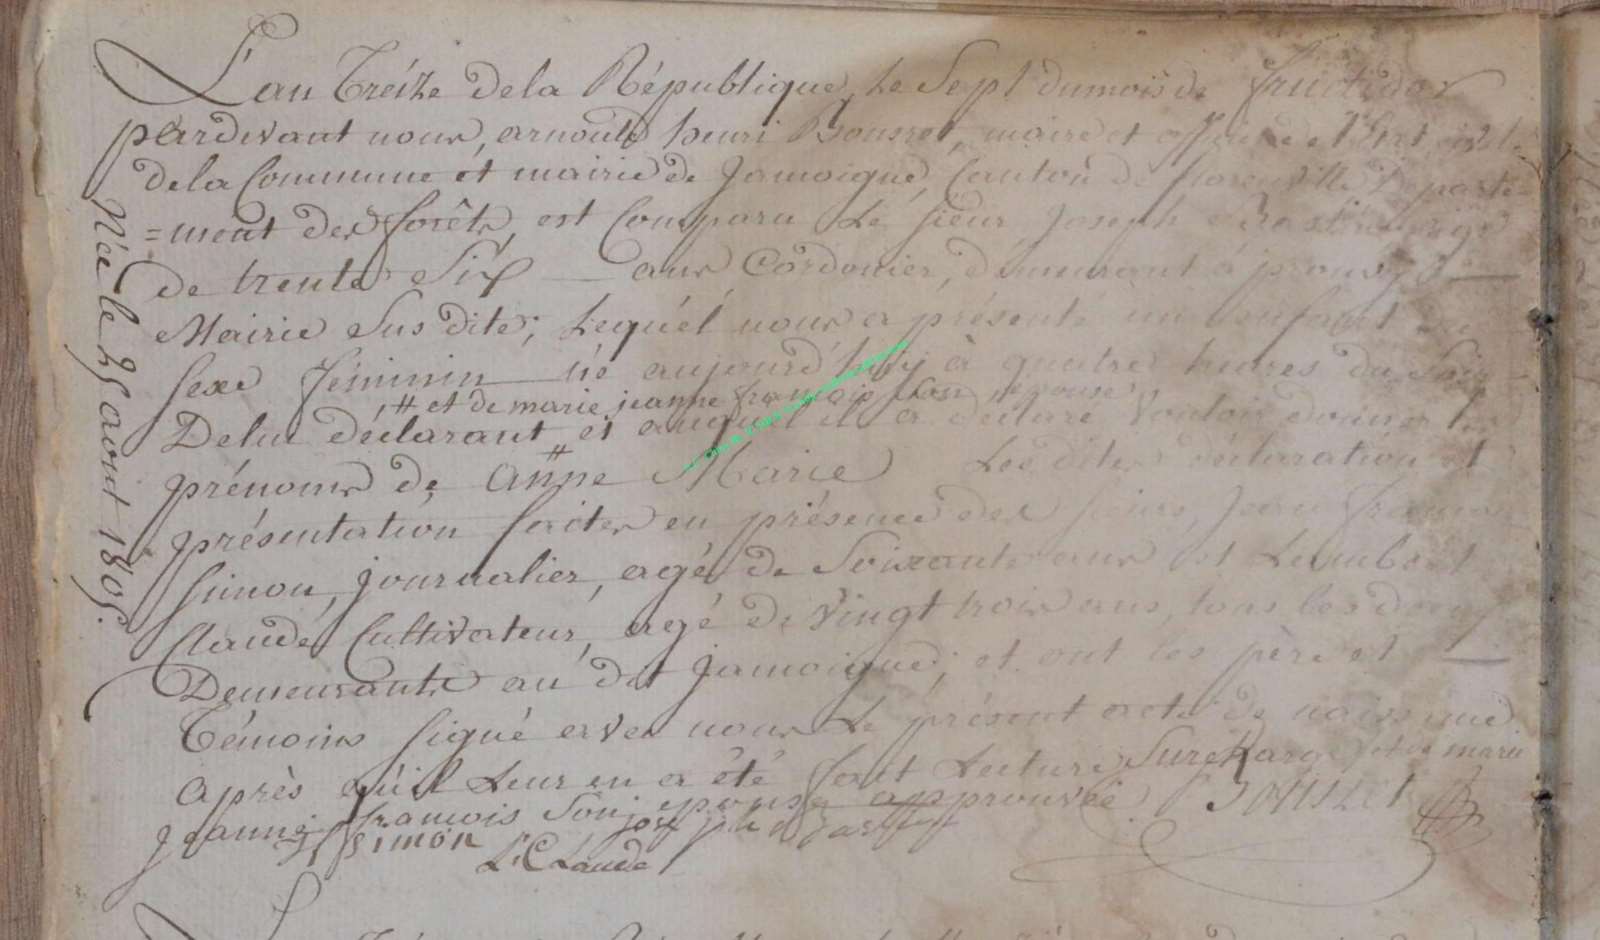 L'an Tréize de la République, le Sept du mois de fructidor
pardevant nous, arnould henri Bonsret, maire et officier de l'Etat civil
de la Commune et mairie de Jamoigne, Canton de florenville Départe-
=ment des forêts, est Comparu Le sieur Joseph agé
de trente Six ans Cordonier, demeurant à prouvy
Mairie Sus dite; Lequél nous a présenté un enfant du
sexe féminin né aujourd'huy à quatre heures du Soir
, # et de marie jeanne françois son epouse,
De lui déclarant # et auquel il a declaré Vouloir donner les
prénoms de anne Marie Les dites déclaration et
présentation faites en présence des sieurs, Jean françois
Simon, journalier, agé de Soixante ans et Lambert
Claude Cultivateur, agé de vingt trois ans, tous les deux
Demeurants au dit Jamoigne; et ont les père et
Témoins signé avec nous Le présent acte de naissance
Après qu'il Leur en a été fait Lecture Surcharge et de marie
jeanne françois Son epouse approuvée
jf simon joseph
L. Claude
Née le 25 aout 1805.